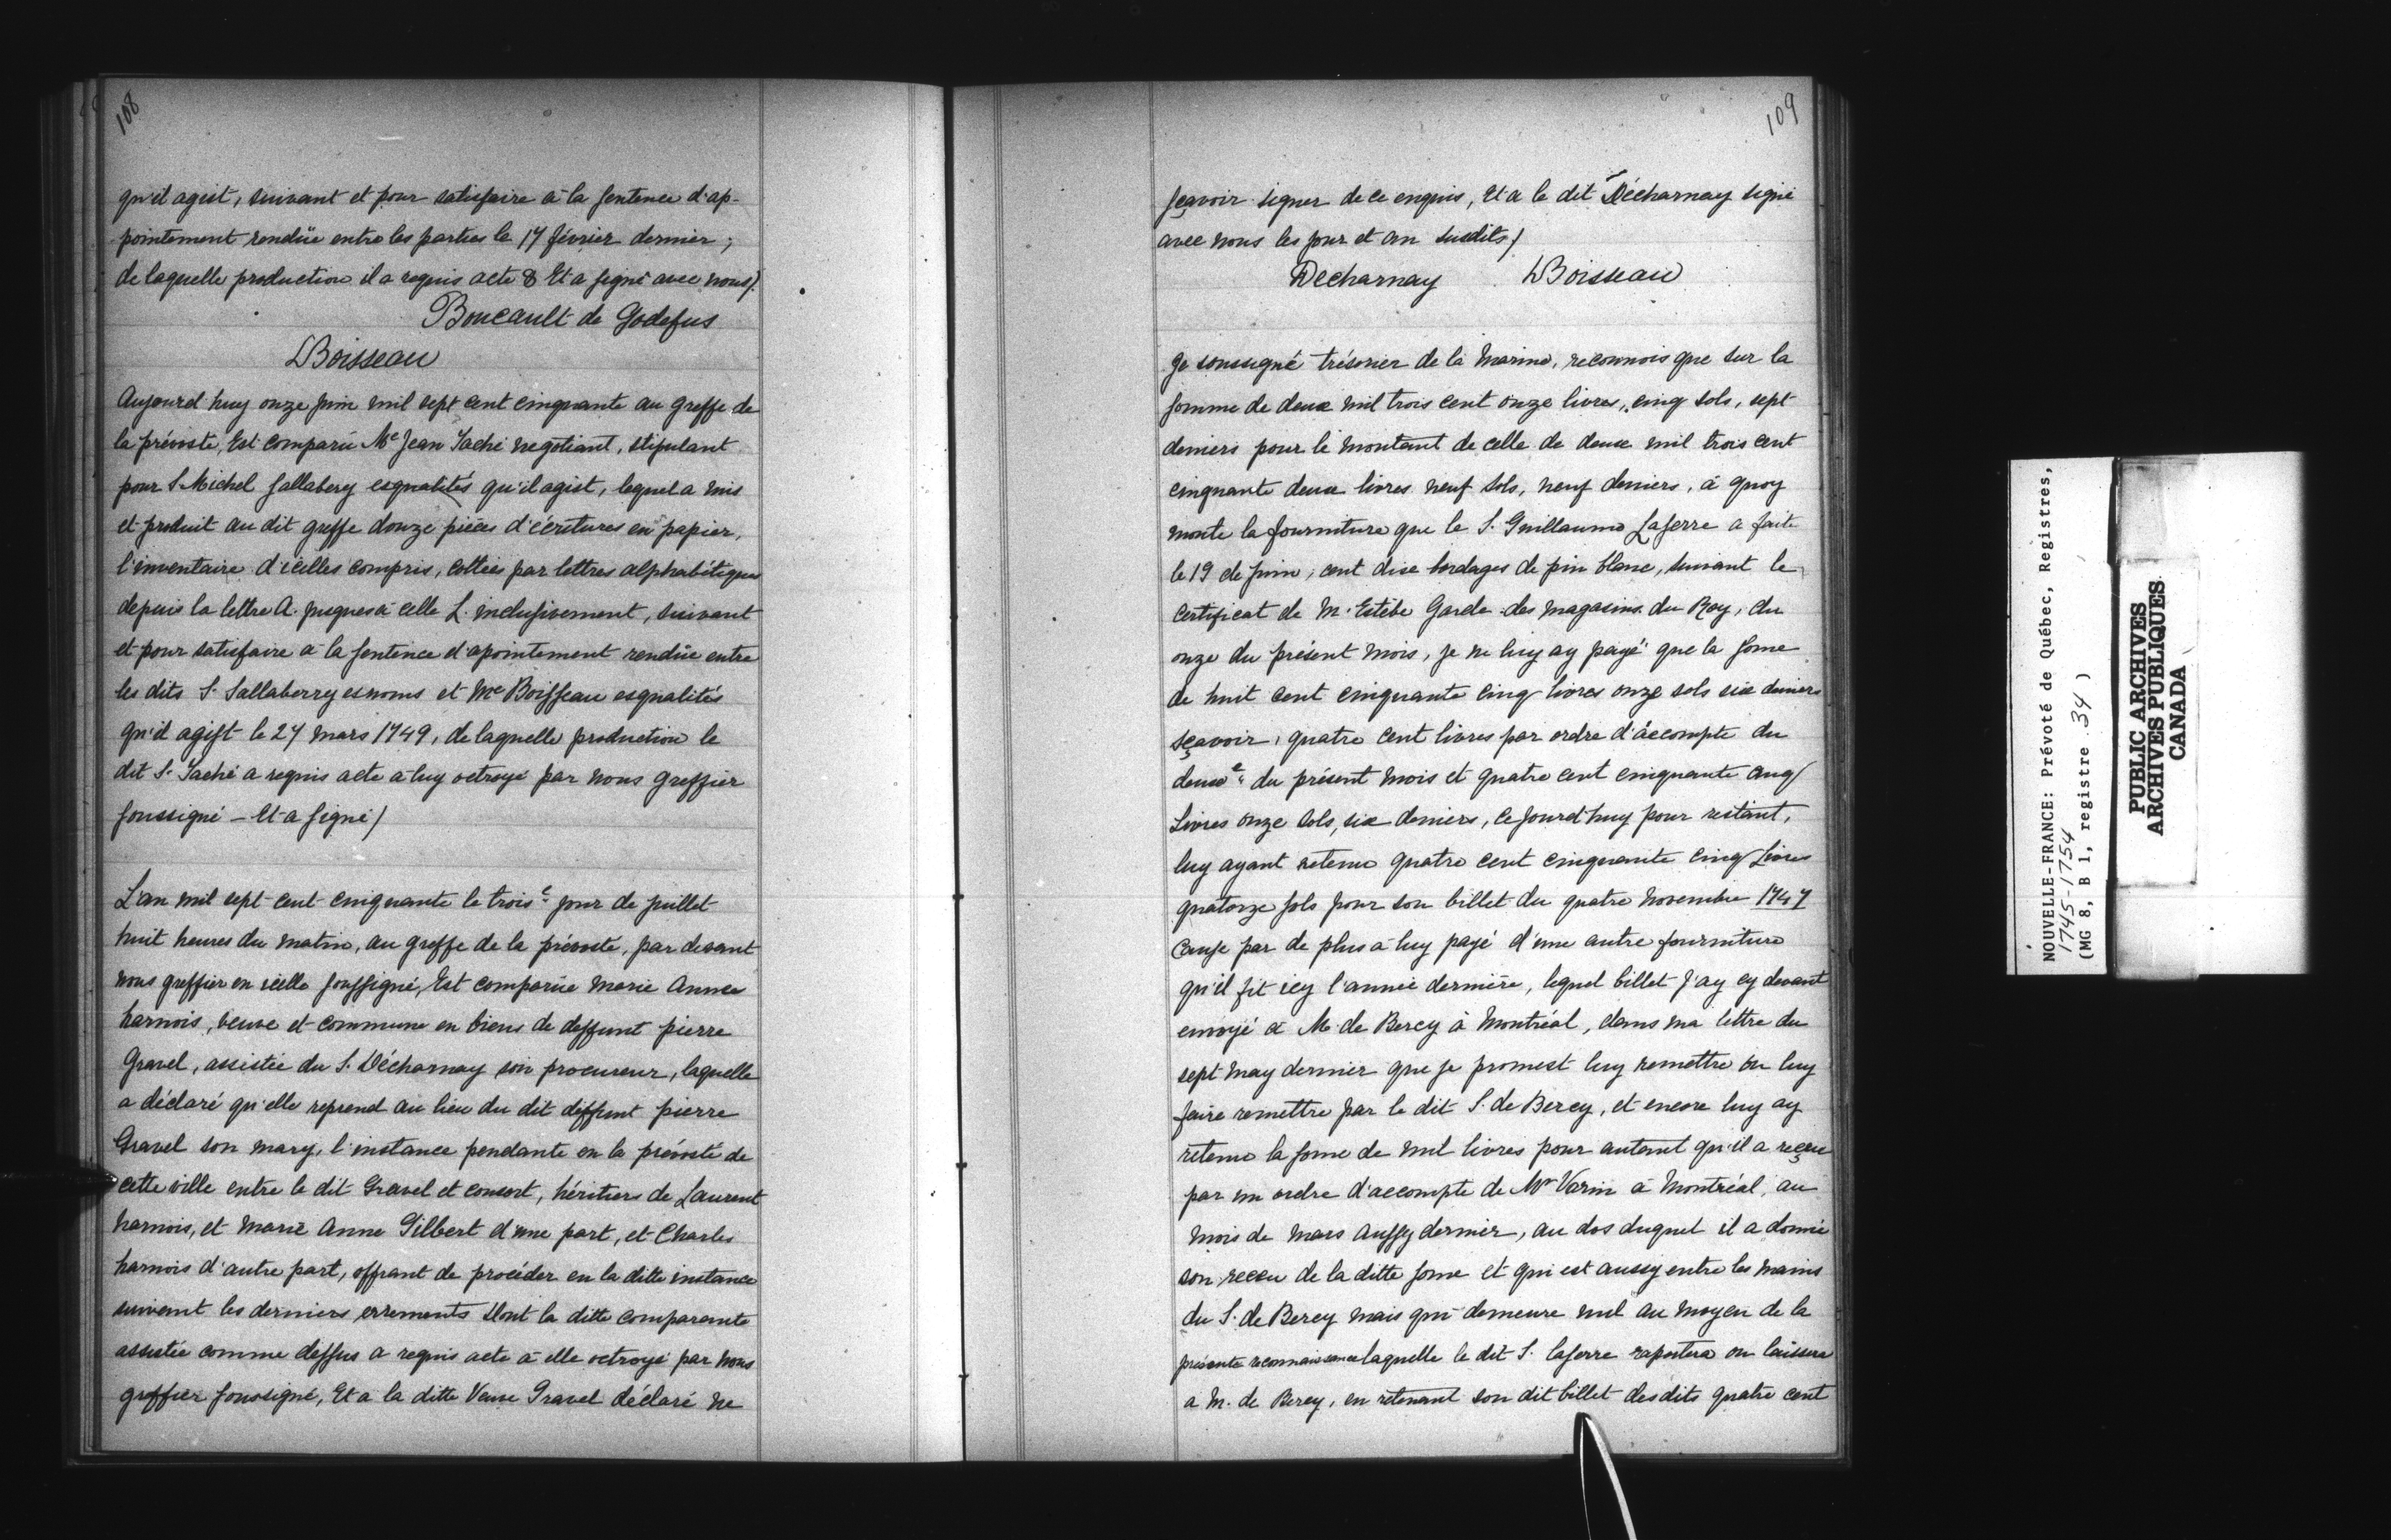 108
qu'il agist, suivant et pour satisfaire à la sentence d'ap-
pointement rendüe entre les parties le 17 février dernier ;
de laquelle production il a requis acte & Et a signé avec nous/.
Boucault de Godefus
LBoisseau
Aujourd huy onze juin mil sept cent cinquante au greffe de
la prévosté, Est comparu Me Jean Taché negotiant, stipulant
pour S. Michel Sallabery esqualités qu'il agist, lequel a mis
et produit au dit greffe douze pièces d'écritures en papier,
l'inventaire d'icelles compris, cottées par lettres alphabétiques
depuis la lettre A. jusques à celle L. inclusivement, suivant
et pour satisfaire à la sentence d'apointement rendüe entre
les dits S. Sallaberry esnoms et Me Boisseau esqualités
qu'il agist le 27 mars 1749, de laquelle production le
dit S. Taché a requis acte à luy octroyé par nous greffier
soussigné – Et a signé/
L'an mil sept cent cinquante le trois e jour de juillet
huit heures du matin, au greffe de la prévosté, par devant
nous greffier en icelle soussigné, Est comparüe Marie Anne
harnois, veuve et commune en biens de deffunt pierre
Gravel, assistée du S. Décharnay son procureur, laquelle
a déclaré qu'elle reprend au lieu du dit deffunt pierre
Gravel son mary, l'instance pendante en la prévosté de
cette ville entre le dit Gravel et consort, héritiers de Laurent
harnois, et Marie Anne Gilbert d'une part, et Charles
harnois d'autre part, offrant de procéder en la ditte instance
suivant les derniers errements dont la ditte comparante
assistée comme dessus a requis acte à elle octroyé par nous
greffier soussigné, Et a la ditte Veuve Gravel déclaré ne
109
sçavoir signer de ce enquis, Et a le dit Décharnay signé
avec nous les jour et an susdits/
Decharnay LBoisseau
Je soussigné trésorier de la Marine, reconnois que sur la
somme de deux mil trois cent onze livres, cinq sols, sept
deniers pour le montant de celle de deux mil trois cent
cinquante deux livres neuf sols, neuf deniers, à quoy
monte la fourniture que le S. Guillaume Laserre a faite
le 19 de juin, cent dix bordages de pin blanc, suivant le
certificat de M. Estèbe Garde des magasins du Roy, du
onze du présent mois, je ne luy ay payé que la some
de huit cent cinquante cinq livres onze sols six deniers
sçavoir, quatre cent livres par ordre d'àccompte du
deux e du présent mois et quatre cent cinquante cinq
Livres onze sols, six deniers, ce jourd'huy pour restant,
luy ayant retenu quatre cent cinquante cinq Livres
quatorze sols pour son billet du quatre novembre 1747
causé par de plus à luy payé d'une autre fourniture
qu'il fit icy l'année dernière, lequel billet j'ay cy devant
envoyé à M. de Bercy à Montréal, dans ma lettre du
sept may dernier que je promest luy remettre ou luy
faire remettre par le dit S. de Bercy, et encore luy ay
retenu la some de mil livres pour autant qu'il a reçeu
par un ordre d'accompte de Mr Varin à Montréal, au
mois de mars aussy dernier, au dos duquel il a donné
son receu de la ditte some et qui est aussy entre les mains
du S. de Bercy mais qui demeure nul au moyen de la
présente reconnaissance laquelle le dit S. laserre raportera ou laissera
a M. de Bercy, en retenant son dit billet desdits quatre cent
NOUVELLE-FRANCE: Prévoté de Québec, Registres,
1745-1754
(MG 8, B 1, registre 34 )
PUBLIC ARCHIVES
ARCHIVES PUBLIQUES
CANADA